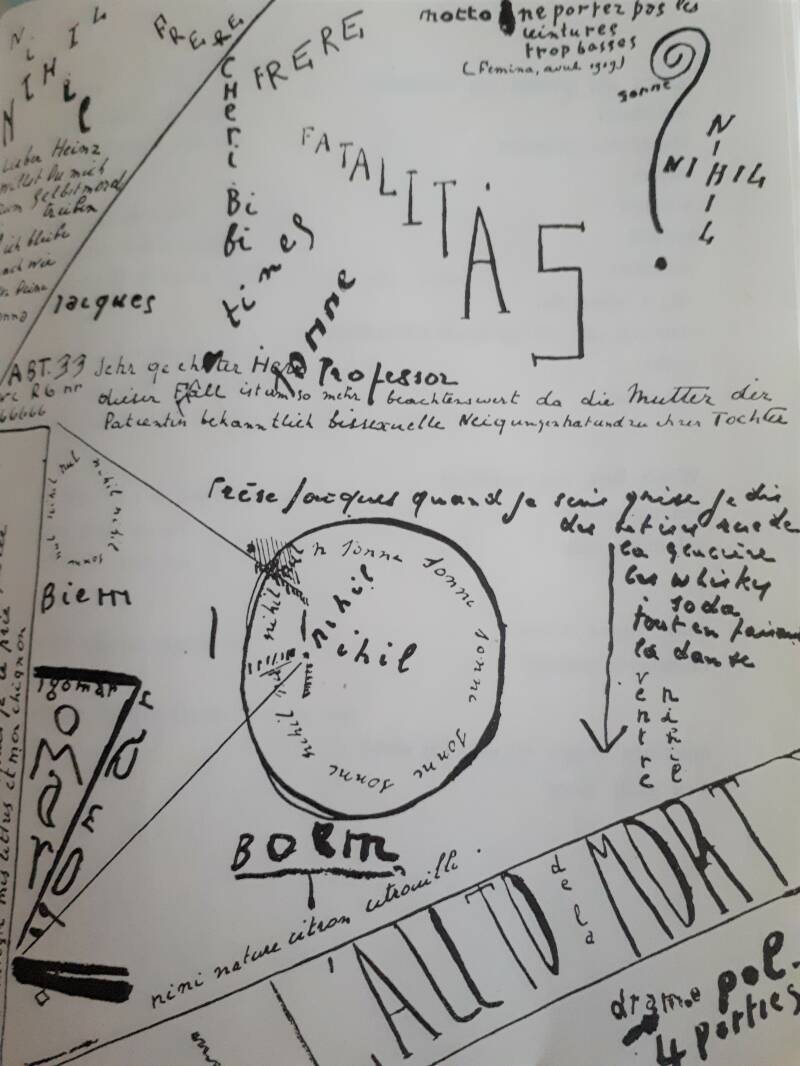 NIHIL
NIHIL
FRERE
FRERE
CHERI
BiBi
FATALITAS
motto ne portez pas les
ceintures
trop basses
(Femina, avril 1919)
sonne
NIHIL
NIHIL
Lieber Heinz
willst Du mich
zum Selbstmord
treiben
ich bleibe
nach wie
Deine
Jacques
times
sonne
ABT. 33 Sehr geehrter Herr Professor
66666
dieser Fäll ist um so mehr beachtenswert da die Mutter der
Patientin bekanntlich bissexuelle Neigungen hat und zu ihrer Tochter
Jacques quand je suis grise je dis
des
la
les whisky
i soda
tout en faisant
la danse
ventre
nihil
nihil nihil
nihil nul
sonne
Biem
Igomar
Igomar
n sonne sonne sonne sonne sonne sonne
nihil nihil nihil
nihil
ihil
BOEM
mes lettres et mon chignon
nini nature citron citrouille.
L'ALLTO de la MORT
drame pol-
4 parties